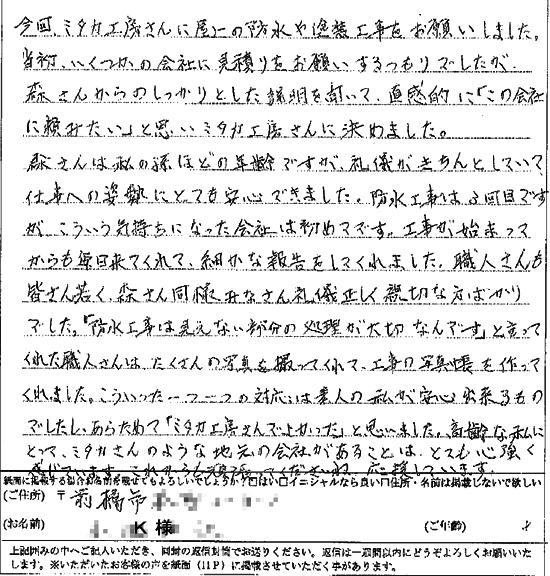 今回、ミタカ工房さんに屋上の防水や塗装工事をお願いしました。
当初、いくつかの会社に見積りをお願いするつもりでしたが、
森さんからのしっかりとした説明を聞いて、直感的に「この会社
に頼みたい」と思いミタカ工房さんに決めました。
森さんは私の孫ほどの年齢ですが、礼儀がきちんとしていて
仕事への姿勢にとても安心できました。防水工事は3回目です
が、こういう気持ちになった会社は初めてです。工事が始まって
からも毎回来てくれて、細かな報告をしてくれました。職人さんも
皆さん若く、森さん同様みなさん礼儀正しく親切な方ばかり
でした。「防水工事は見えない部分の処理が大切なんです」と言って
くれた職人さんは、たくさんの写真を撮ってくれて、工事の写真帳を作って
くれました。こういった一つ一つの対応は素人の私が安心出来るもの
でしたし、あらためて「ミタカ工房さんでよかった」と思いました。高齢な私に
とって、ミタカさんのような地元の会社があることは、とても心強く
感じています。これからも頑張ってくださいね。応援しています。
紙面に掲載する場合お名前を載せてもよろしいでしょうか?□はい□イニシャルなら良い□住所・名前は掲載しないで欲しい
(ご住所) 〒 前橋市
(お名前) K 様 (ご年齢) 才
上記囲みの中へご記入いただき、同封の返信封筒でお送りください。返信は一週間以内にどうぞよろしくお願いいた
します。※いただいたお客様の声を紙面(11P)に掲載させていただく事があります。